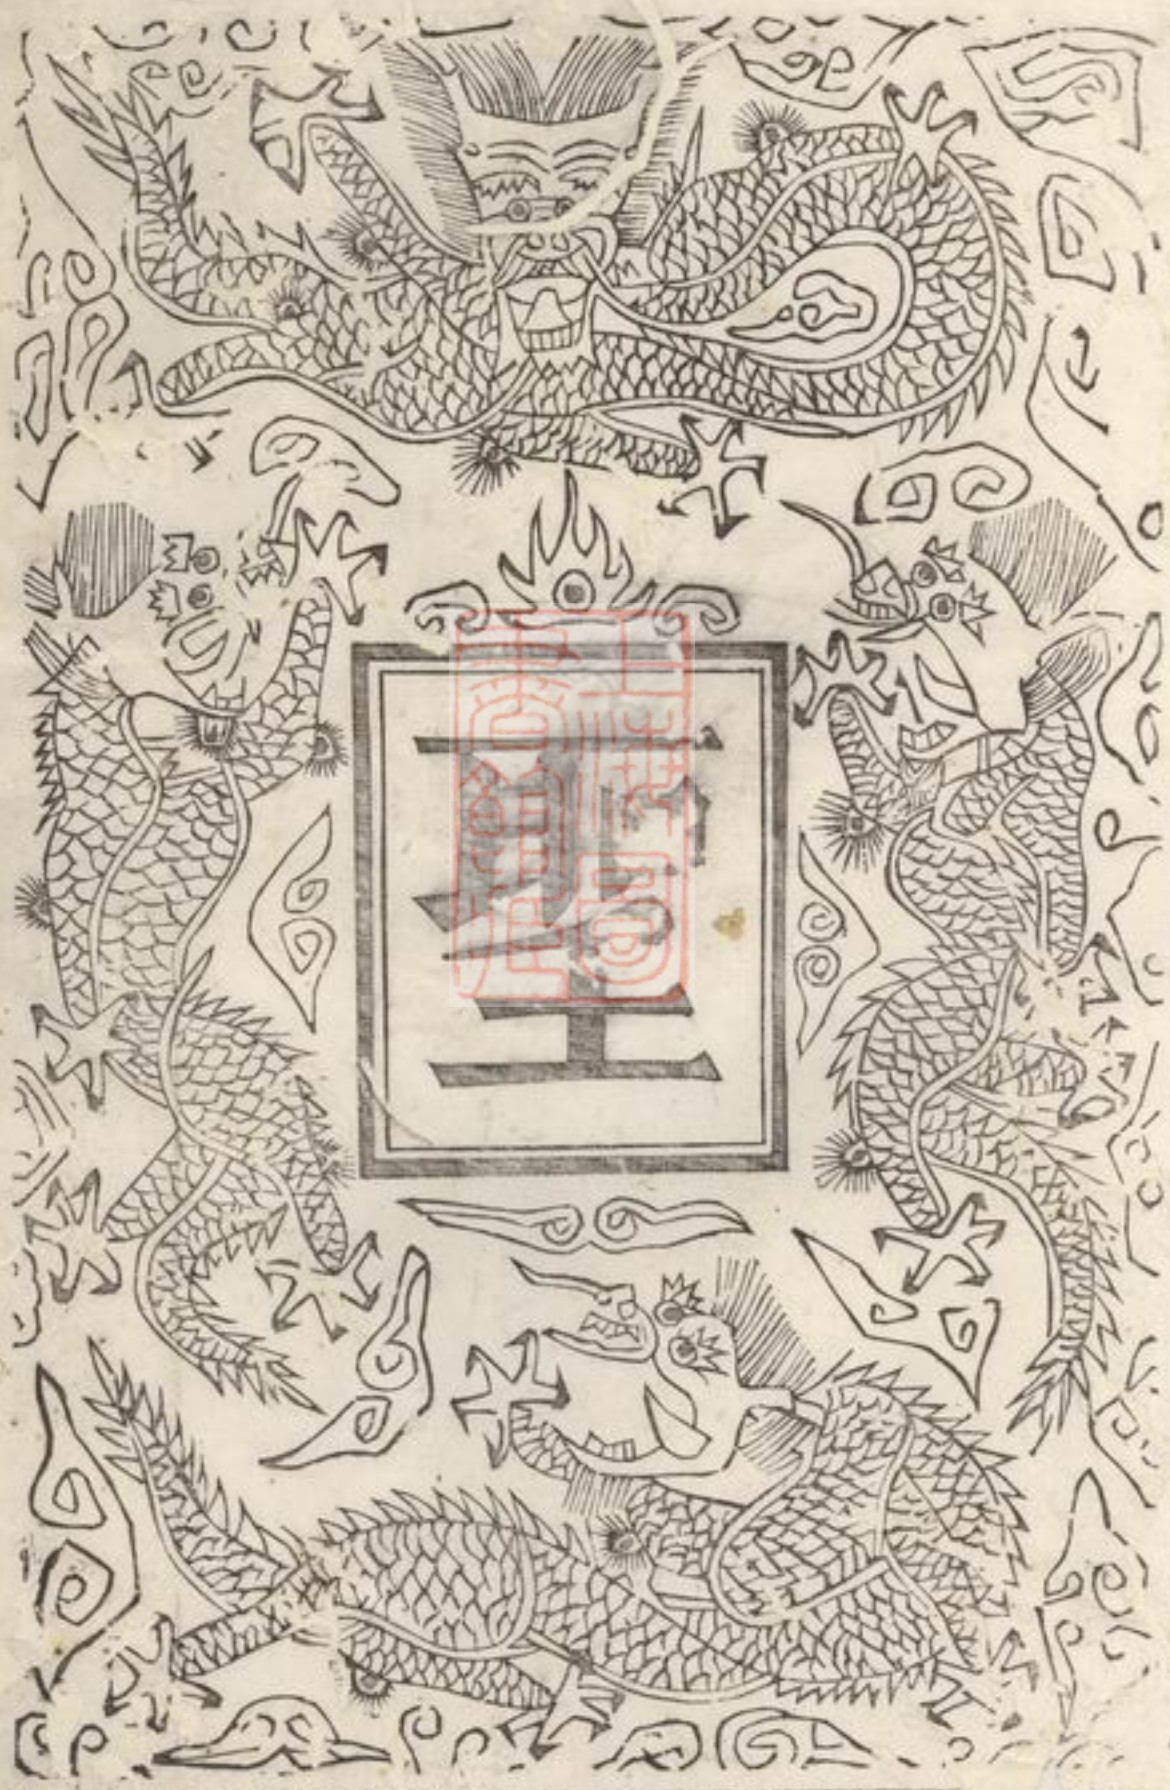 聖
上海圖
書館藏